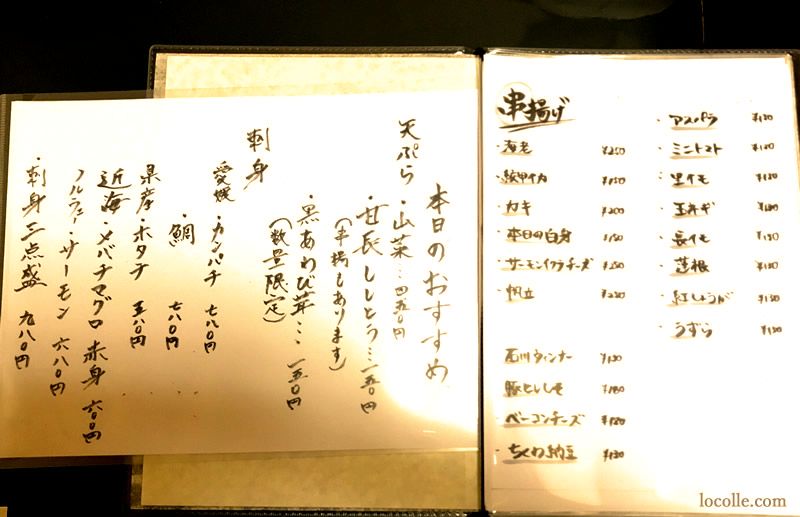 本日のおすすめ
天ぷら・山菜…四五〇円
・甘長ししとう…一五〇円
(串揚もあります)
・黒あわび茸…一五〇円
(数量限定)
刺身
愛媛・カンパチ 七八〇円
・鯛 七八〇円
県産・ホタテ 五八〇円
近海・メバチマグロ赤身 六〇〇円
ノルウェー・サーモン 六八〇円
・刺身三点盛 九八〇円
串揚げ
・海老 ¥250
・紋甲イカ ¥150
・カキ ¥200
・本日の白身 ¥150
・サーモンイクラチーズ ¥250
・帆立 ¥220
・石川ウィンナー ¥130
・豚としそ ¥180
・ベーコンチーズ ¥120
・ちくわ納豆 ¥130
・アスパラ ¥120
・ミニトマト ¥120
・里イモ ¥120
・玉ネギ
・長イモ ¥120
・蓮根
・紅しょうが ¥130
・うずら ¥120
locolle.com